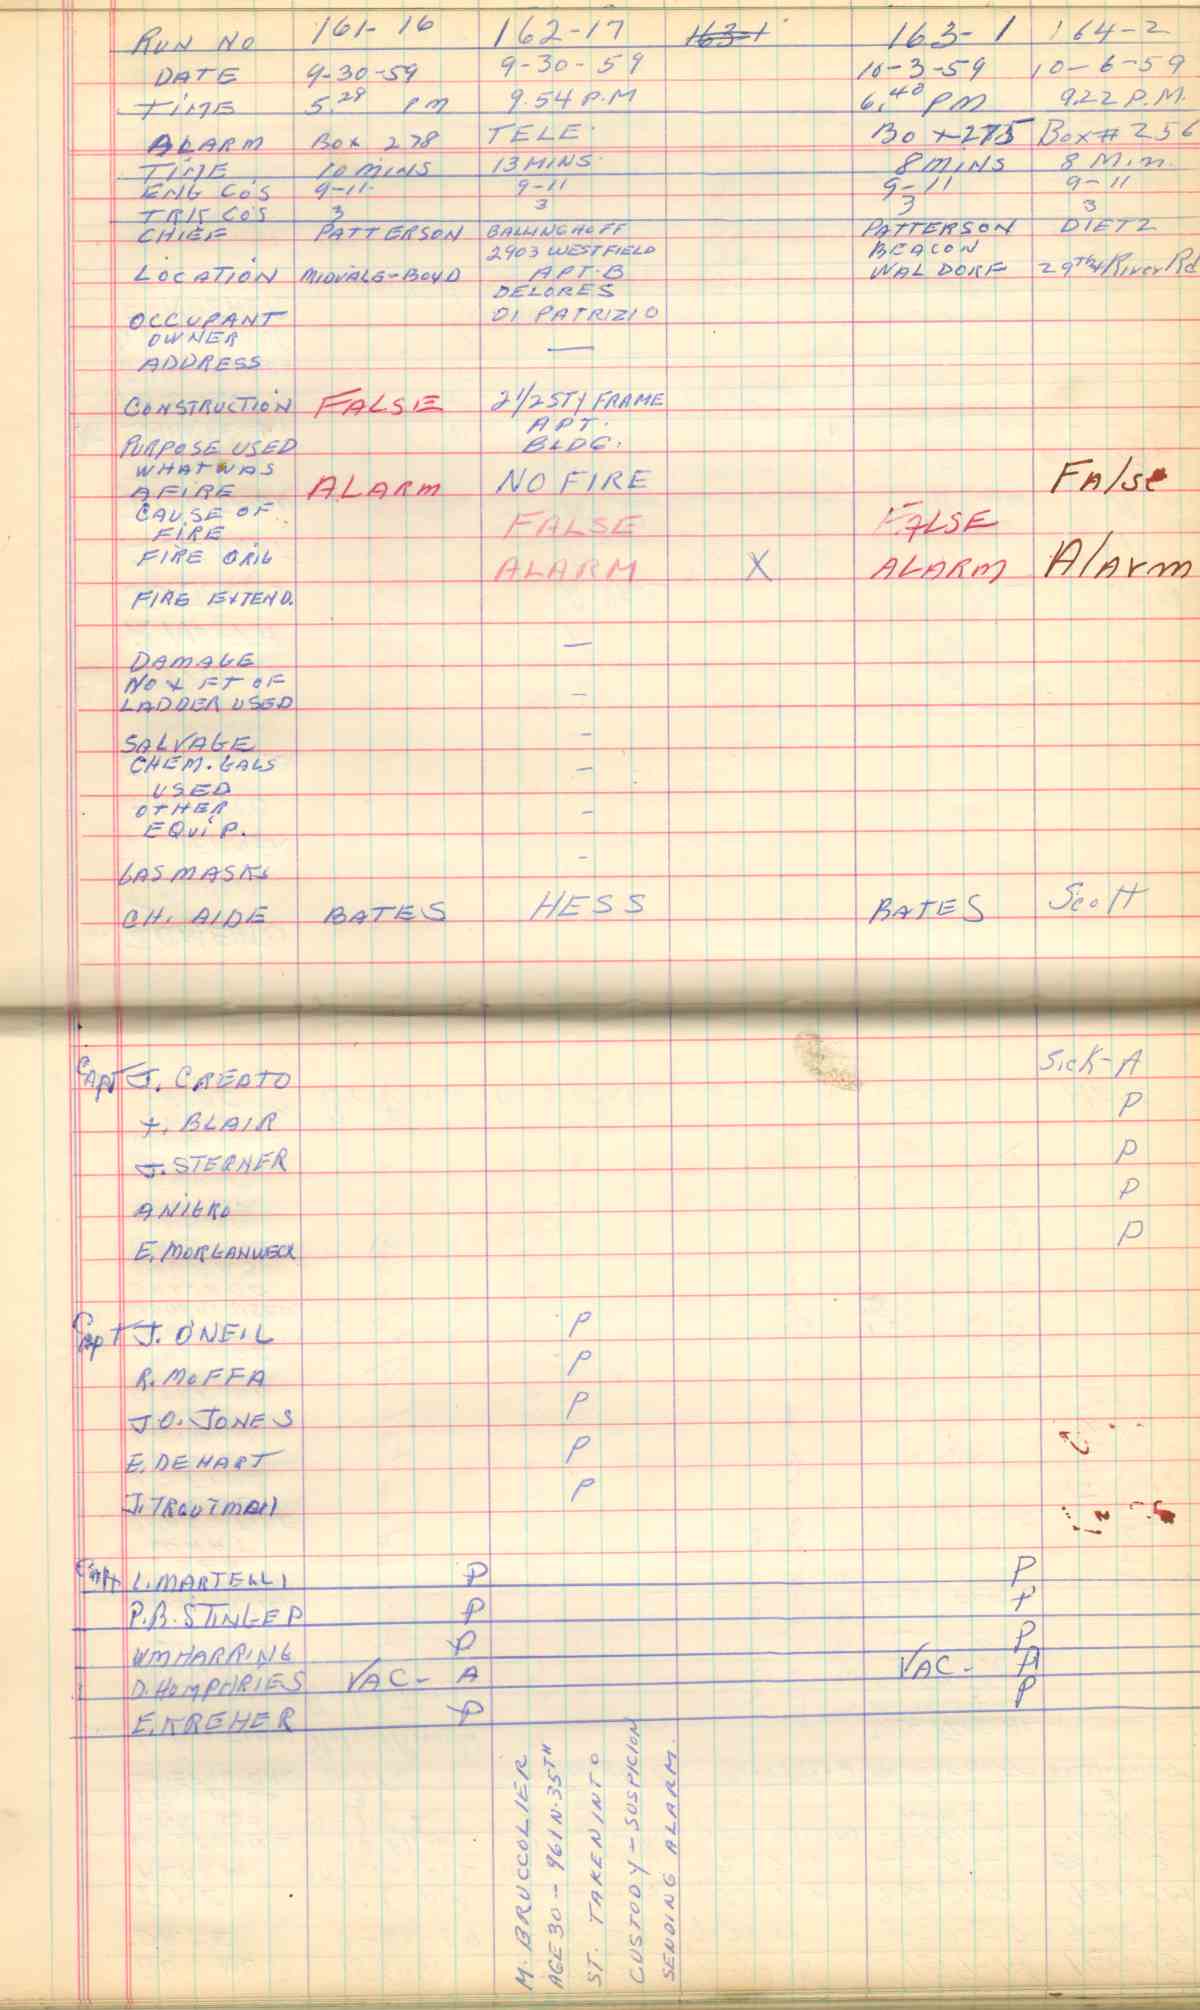 RUN NO 161-16 162-17 163-1 163-1 164-2
DATE 9-30-59 9-30-59 10-3-59 10-6-59
TIME 5.28 PM 9.54 P.M 6,40 PM 9.22 P.M.
ALARM BOX 278 TELE. BOX 275 BOX # 256
TIME 10 MINS 13 MINS. 8 MINS 8 Min.
ENG CO'S 9-11 9-11 9-11 9-11
TRK CO'S 3 3 3 3
CHIEF PATTERSON BALLINGHOFF PATTERSON DIETZ
2903 WESTFIELD BEACON
LOCATION MIDVALE-BOYD APT-B WALDORF 29th & River Rd
DELORES
OCCUPANT DI PATRIZIO
OWNER
ADDRESS —
CONSTRUCTION FALSE 2 1/2 STY FRAME
APT.
PURPOSE USED BLDG.
WHAT WAS
AFIRE ALARM NO FIRE False
CAUSE OF
FIRE FALSE FALSE
FIRE ORIG ALARM X ALARM Alarm
FIRE EXTEND.
DAMAGE —
NO & FT OF
LADDER USED -
SALVAGE -
CHEM. GALS -
USED
OTHER
EQUIP. -
GAS MASKS -
CH. AIDE BATES HESS BATES Scott
CAPT J. CREATO SICK-A
BLAIR P
J. STERNER P
A NIGRO P
E. MORGANWECK P
CAPT J. O'NEIL P
R. MOFFA P
J.O. JONES P
E. DEHART P
J. TROUTMAN P
CAPT L. MARTELLI P P
P.B. STINGER P P
WM HARRING P P
D. HUMPHRIES VAC- A VAC- A
E. KREHER P P
M. BRUCCOLIER
AGE 30 - 961 N. 35TH
ST. TAKEN INTO
CUSTODY - SUSPICION
SENDING ALARM.